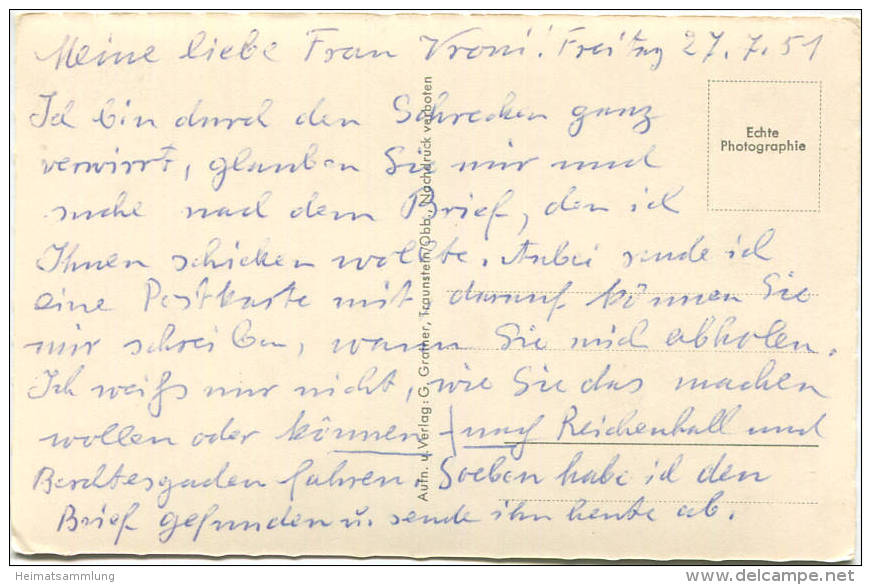 Meine liebe Frau Vroni! Freitag 27.7.51
Ich bin durch den Schrecken ganz
verwirrt, glauben Sie mir und
suche nach dem Brief, den ich
Ihnen schicken wollte. Anbei sende ich
eine Postkarte mit, darauf können Sie
mir schreiben, wann Sie mich abholen.
Ich weiß nur nicht, wie Sie das machen
wollen oder können nach Reichenhall und
Berchtesgaden fahren. Soeben habe ich den
Brief gefunden u. sende ihn heute ab.
Echte
Photographie
Aufn. u. Verlag: G. Grather, Traunstein/Obb., Nachdruck verboten
Heimatsammlung
delcampe.net